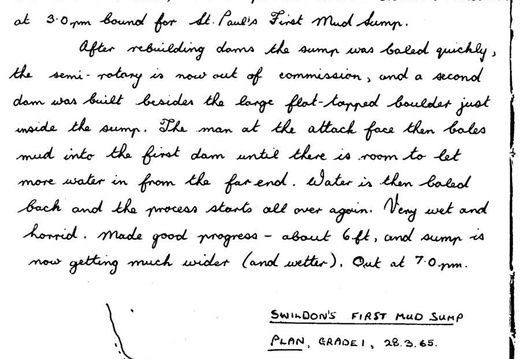 at 3.0pm bound for St. Paul's First Mud Sump.
After rebuilding dams the sump was baled quickly,
the semi-rotary is now out of commission, and a second
dam was built besides the large flat-topped boulder just
inside the sump. The man at the attack face then bales
mud into the first dam until there is room to let
more water in from the far end. Water is then baled
back and the process starts all over again. Very wet and
horrid. Made good progress - about 6ft, and sump is
now getting much wider (and wetter). Out at 7.0pm.
SWILDON'S FIRST MUD SUMP
PLAN, GRADE 1, 28.3.65.